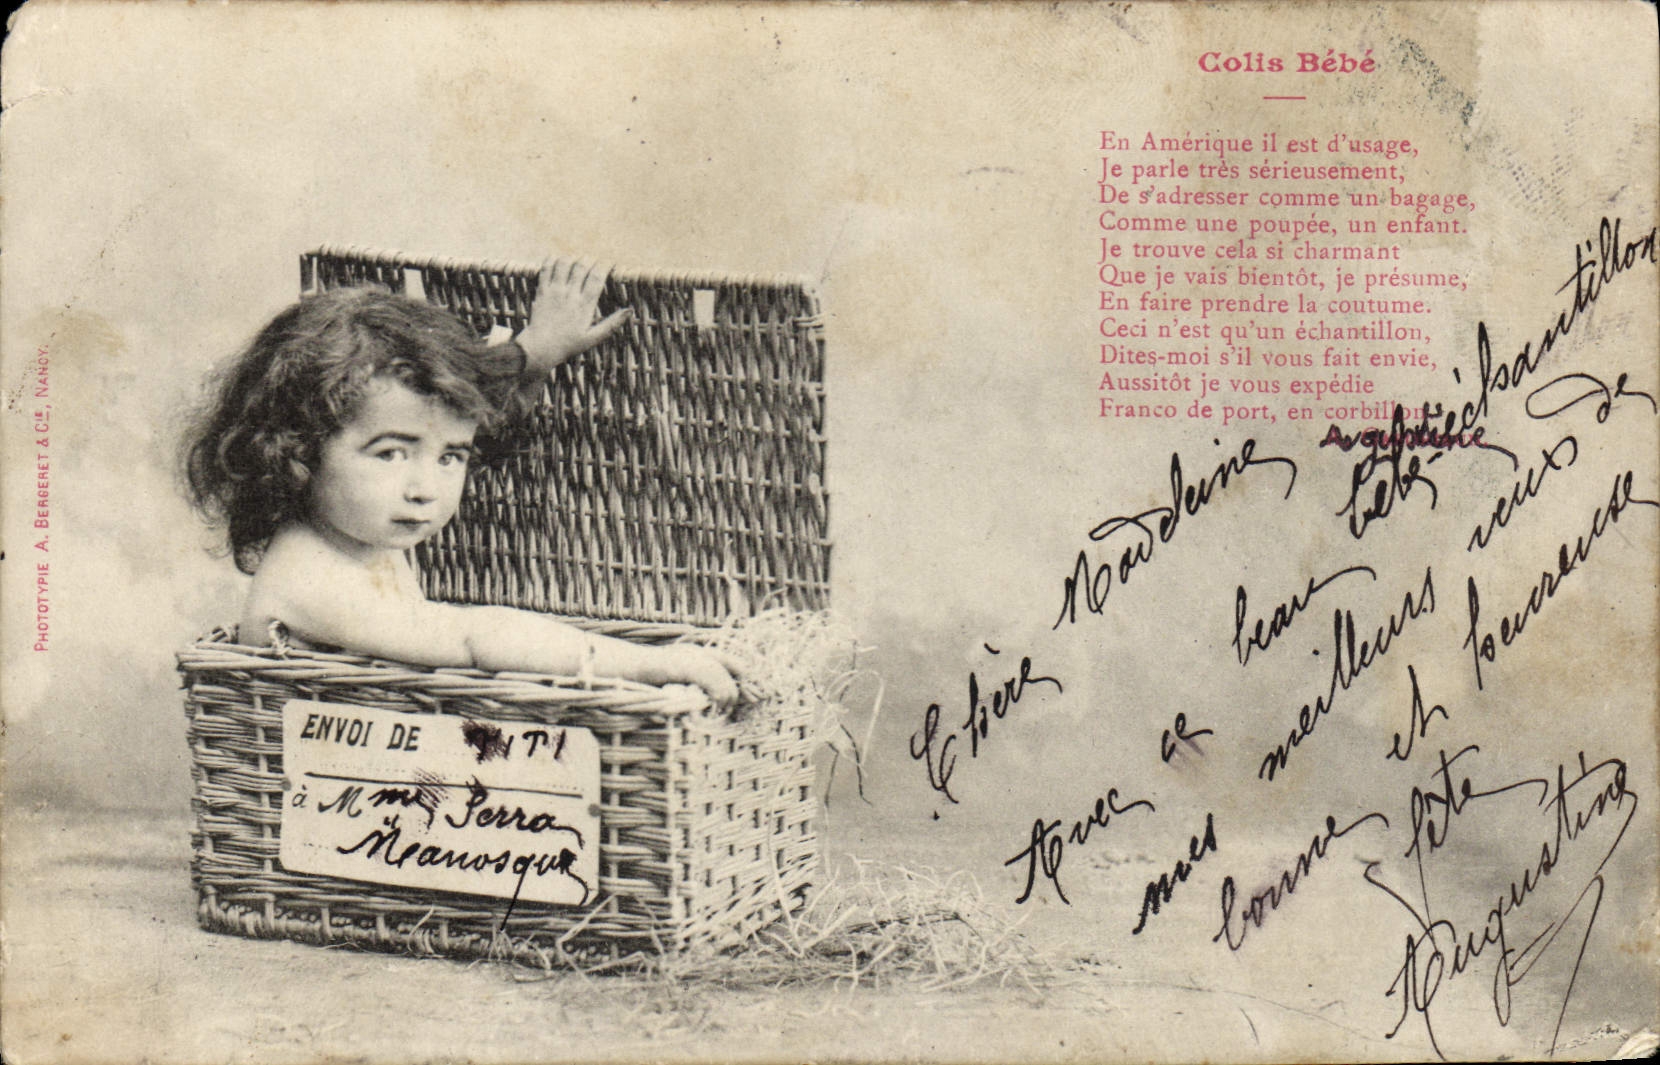 Colis Bébé
En Amérique il est d'usage,
Je parle très sérieusement,
De s'adresser comme un bagage,
Comme une poupée, un enfant.
Je trouve cela si charmant
Que je vais bientôt, je présume,
En faire prendre la coutume.
Ceci n'est qu'un échantillon,
Dites-moi s'il vous fait envie,
Aussitôt je vous expédie
Franco de port, en corbillon.
Augustine
Chère Madeleine
Avec ce beau bébé-échantillon
mes meilleurs vœux de
bonne et heureuse
fête
Augustine
ENVOI DE TITI
à Mme Serra
Manosque
PHOTOTYPIE A. BERGERET & CIE, NANCY.